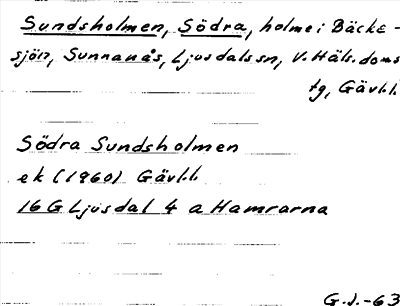 Sundsholmen, Södra, holme i Bäcke-
sjön, Sunnanås, Ljusdals sn, V. Häls. doms.
tg, Gävl.l.
Södra Sundsholmen
ek (1960) Gävl.l.
16 G Ljusdal 4 a Hamrarna
G.J.-63